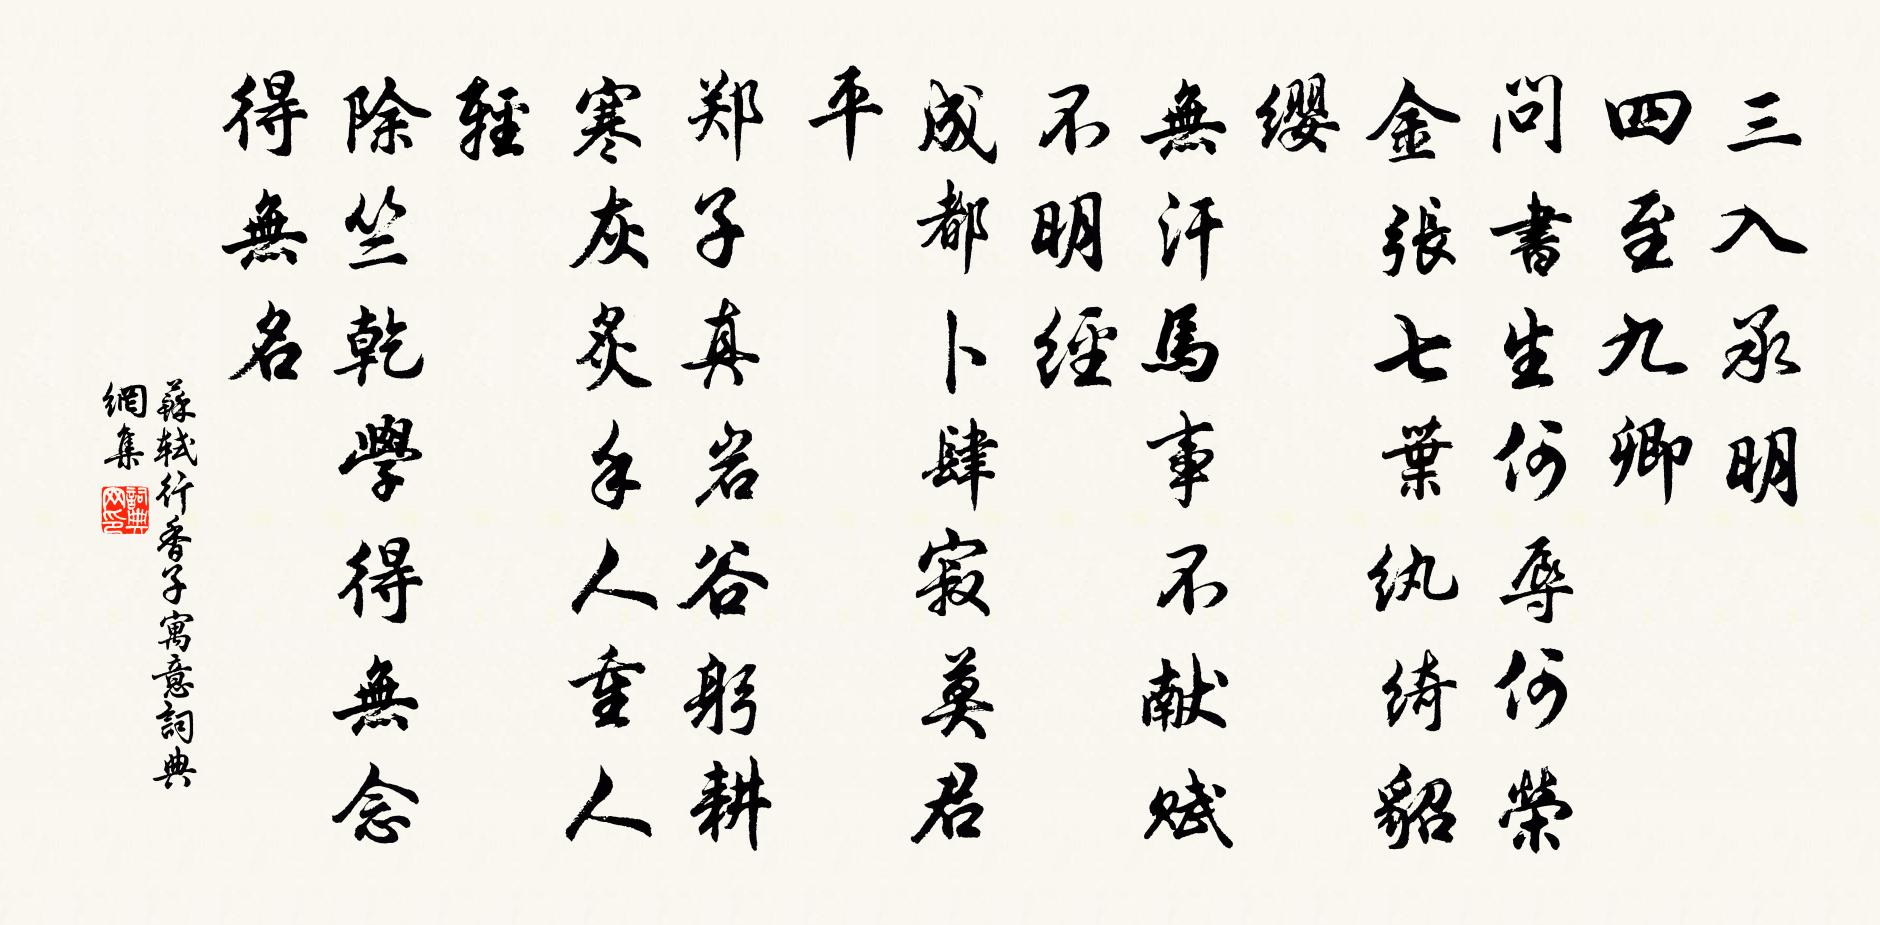 三入承明
四至九卿
問書生何辱何榮
金張七葉紈綺貂
纓
無汗馬事不献賦
不明經
成都卜肆寂莫君
平
郑子真岩谷躬耕
寒灰炙手人重人
輕
除竺乾學得無念
得無名
蘇軾行香子寓意詞典
網集
詞典
网印